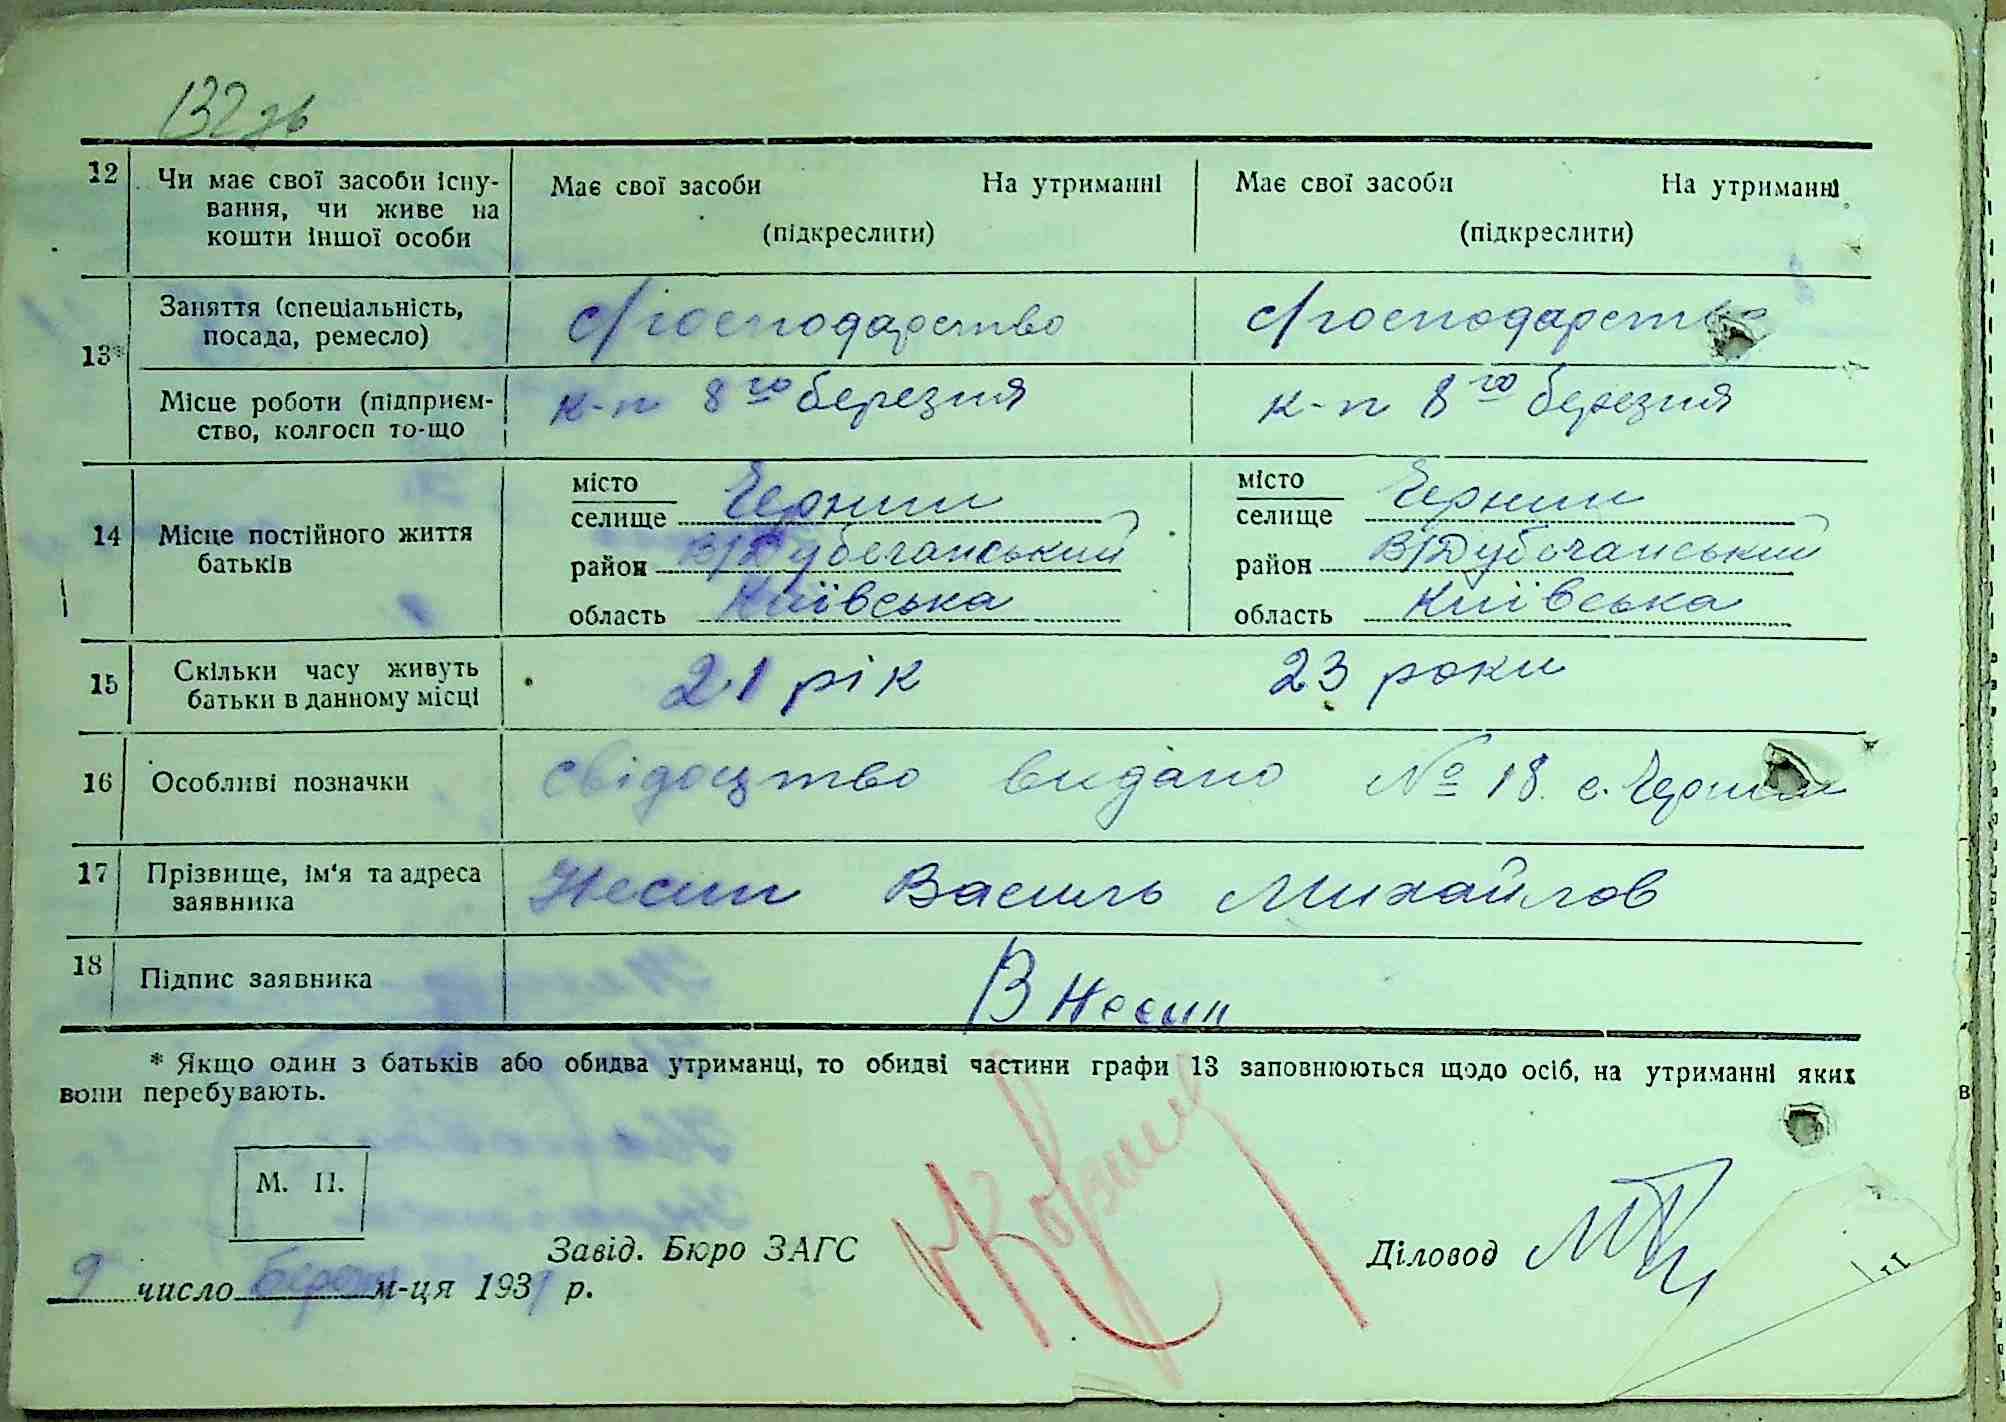 132 зв
12 Чи має свої засоби існу- Має свої засоби На утриманні Має свої засоби На утриманні
вання, чи живе на
кошти іншої особи (підкреслити) (підкреслити)
Заняття (спеціальність, с/господарство с/господарство
посада, ремесло)
13*
Місце роботи (підприєм- к-п 8го березня к-п 8го березня
ство, колгосп то-що
місто Чернин місто Чернин
селище селище
14 Місце постійного життя район В/Дубечанський район В/Дубечанський
батьків
область Київська область Київська
15 Скільки часу живуть 21 рік 23 роки
батьки в данному місці
16 Особливі позначки свідоцтво видано № 18 с. Чернин
17 Прізвище, ім'я та адреса Несин Василь Михайлов
заявника
18 Підпис заявника В Несин
* Якщо один з батьків або обидва утриманці, то обидві частини графи 13 заповнюються щодо осіб, на утриманні яких
вони перебувають.
М. П.
Завід. Бюро ЗАГС Діловод
9 число м-ця 193 р.